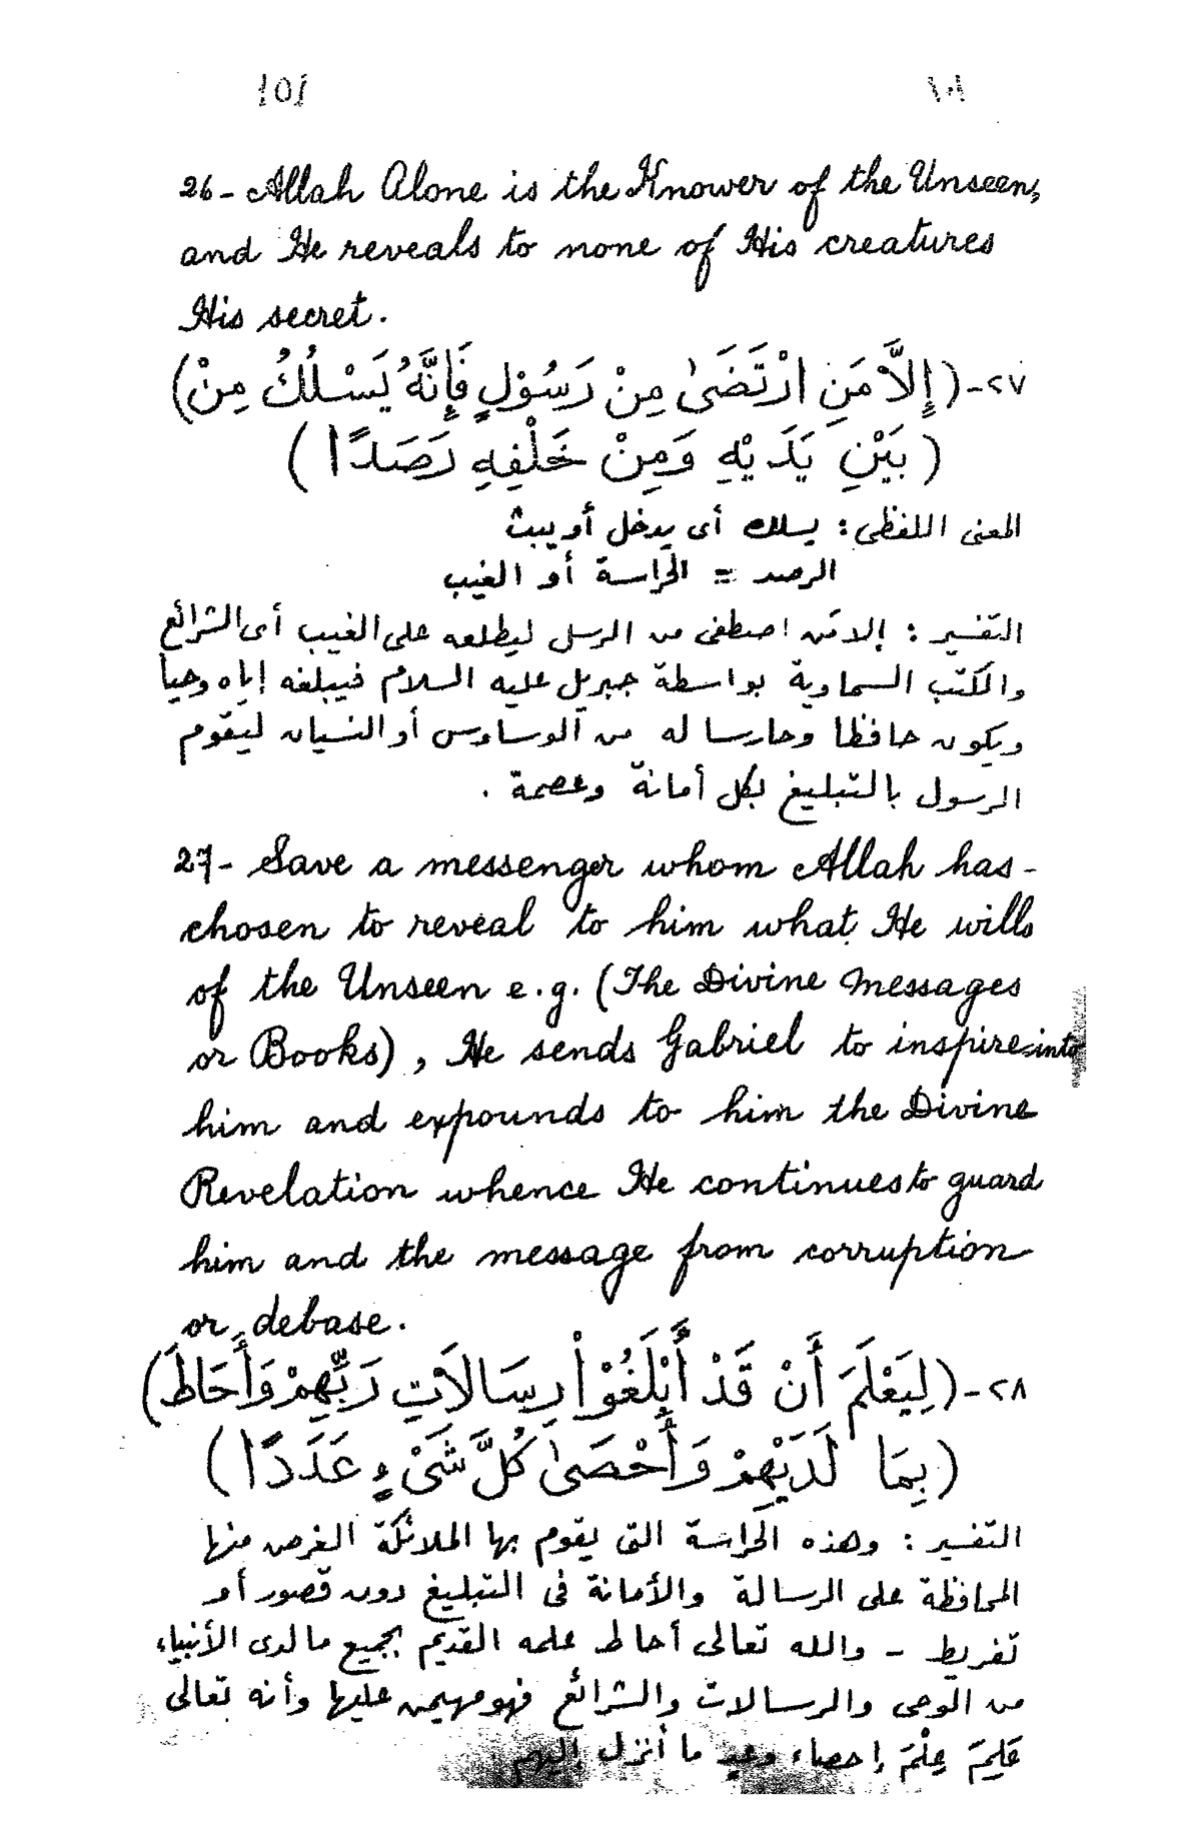 101 ١٠١
26- Allah Alone is the Knower of the Unseen,
and He reveals to none of His creatures
His secret.
٢٧- (إِلاَّ مَنِ ارْتَضَىٰ مِنْ رَسُوْلٍ فَإِنَّهُ يَسْلُكُ مِنْ)
(بَيْنِ يَدَيْهِ وَمِنْ خَلْفِهِ رَصَدًا)
المعنى اللفظى: يسلك أى يدخل أو يبث
الرصد = الحراسة أو الغيب
التفسير: إلا مَن اصطفى من الرسل ليطلعه على الغيب أى الشرائع
والكتب السماوية بواسطة جبريل عليه السلام فيبلغه إياه وحيا
ويكون حافظا وحارسا له من الوساوس أو النسيان ليقوم
الرسول بالتبليغ بكل أمانة وعصمة .
27- Save a messenger whom Allah has-
chosen to reveal to him what He wills
of the Unseen e.g. (The Divine Messages
or Books), He sends Gabriel to inspire into
him and expounds to him the Divine
Revelation whence He continues to guard
him and the message from corruption
or debase.
٢٨- (لِيَعْلَمَ أَنْ قَدْ أَبْلَغُوْا رِسَالاَتِ رَبِّهِمْ وَأَحَاطَ)
(بِمَا لَدَيْهِمْ وَأَحْصَىٰ كُلَّ شَىْءٍ عَدَدًا)
التفسير: وهذه الحراسة التى يقوم بها الملائكة الغرض منها
المحافظة على الرسالة والأمانة فى التبليغ دون قصور أو
تفريط - والله تعالى أحاط علمه القديم بجميع ما لدى الأنبياء
من الوحى والرسالات والشرائع فهو مهيمن عليها وأنه تعالى
عَلِمَ عِلْمَ إحصاء وعد ما أنزل إليهم